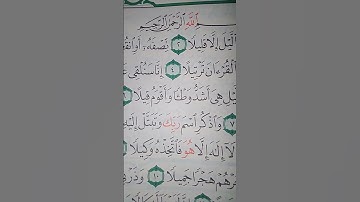 ٱللَّهِ ٱلرَّحْمَٰنِ ٱلرَّحِيمِ
ٱلَّيْلَ إِلَّا قَلِيلًا ٢ نِّصْفَهُۥٓ أَوِ ٱنقُ
ٱلْقُرْءَانَ تَرْتِيلًا ٤ إِنَّا سَنُلْقِى عَ
يْلِ هِىَ أَشَدُّ وَطْـًٔا وَأَقْوَمُ قِيلًا
٧ وَٱذْكُرِ ٱسْمَ رَبِّكَ وَتَبَتَّلْ إِلَيْهِ
لَآ إِلَٰهَ إِلَّا هُوَ فَٱتَّخِذْهُ وَكِيلًا
هُمْ هَجْرًا جَمِيلًا ١٠ وَذَرْنِ